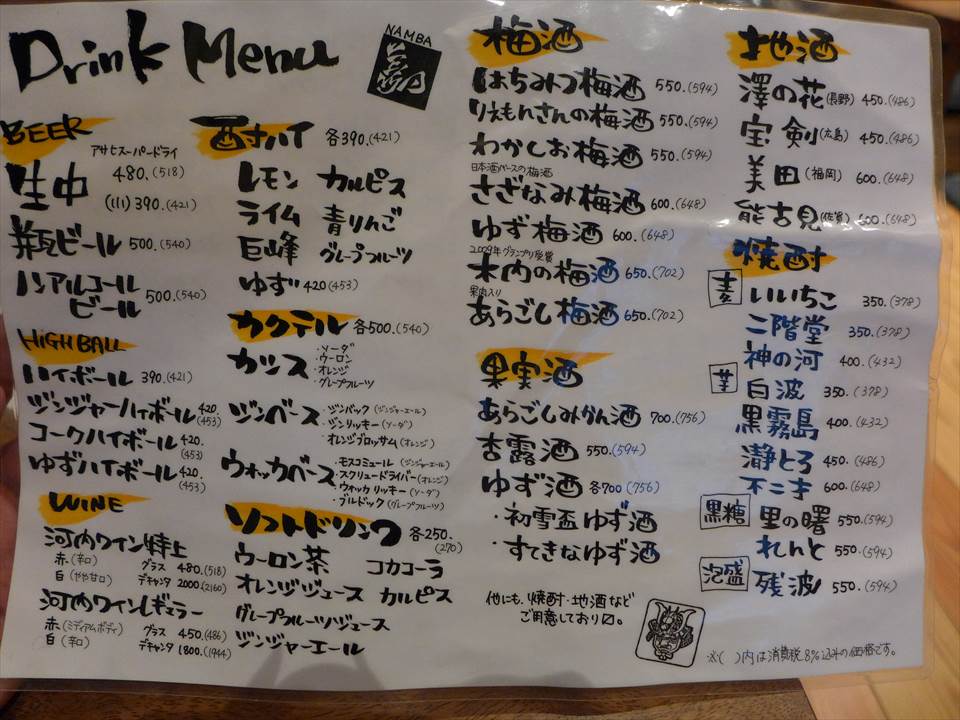 Drink Menu
NAMBA
BEER
アサヒスーパードライ
生中 480.(518)
(小) 390.(421)
瓶ビール 500.(540)
ノンアルコール
ビール 500.(540)
HIGH BALL
ハイボール 390.(421)
ジンジャーハイボール 420.(453)
コークハイボール 420.(453)
ゆずハイボール 420.(453)
WINE
河内ワイン特上
赤(辛口) グラス 480.(518)
白(やや甘口) デキャンタ 2000.(2160)
河内ワインレギュラー
赤(ミディアムボディ) グラス 450.(486)
白(辛口) デキャンタ 1800.(1944)
酎ハイ 各390.(421)
レモン カルピス
ライム 青りんご
巨峰 グレープフルーツ
ゆず 420(453)
カクテル 各500.(540)
カシス
・ソーダ
・ウーロン
・オレンジ
・グレープフルーツ
ジンベース
・ジンバック(ジンジャーエール)
・ジンリッキー(ソーダ)
・オレンジブロッサム(オレンジ)
ウォッカベース
・モスコミュール(ジンジャーエール)
・スクリュードライバー(オレンジ)
・ウォッカリッキー(ソーダ)
・ブルドック(グレープフルーツ)
ソフトドリンク 各250.(270)
ウーロン茶 コカコーラ
オレンジジュース カルピス
グレープフルーツジュース
ジンジャーエール
梅酒
はちみつ梅酒 550.(594)
りえもんさんの梅酒 550.(594)
わかしお梅酒 550.(594)
日本酒ベースの梅酒
さざなみ梅酒 600.(648)
ゆず梅酒 600.(648)
2009年グランプリ受賞
木内の梅酒 650.(702)
果肉入り
あらごし梅酒 650.(702)
果実酒
あらごしみかん酒 700.(756)
杏露酒 550.(594)
ゆず酒 各700(756)
・初雪盃ゆず酒
・すてきなゆず酒
他にも、焼酎・地酒など
ご用意しており〼。
地酒
澤の花(長野) 450.(486)
宝剣(広島) 450.(486)
美田(福岡) 600.(648)
能古見(佐賀) 600.(648)
焼酎
麦 いいちこ 350.(378)
二階堂 350.(378)
神の河 400.(432)
芋 白波 350.(378)
黒霧島 400.(432)
瀞とろ 450.(486)
不二才 600.(648)
黒糖 里の曙 550.(594)
れんと 550.(594)
泡盛 残波 550.(594)
※( )内は消費税8%込みの価格です。